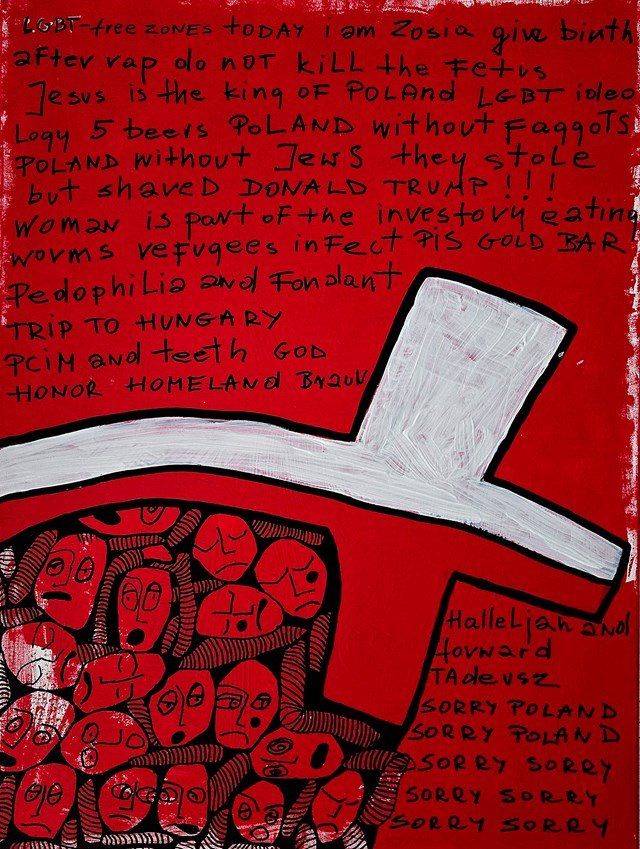 LGBT-free ZONES TODAY I am Zosia give birth
after rap do noT kiLL the Fetus
Jesus is the king oF POLAnd LGBT ideo
Logy 5 beers PoLAND without FaggoTS
POLAND without JewS they stole
but shaveD DONALD TRUMP!!!
Woman is part of the investory eating
worms refugees infect PiS GOLD BAR
Pedophilia and Fondant
TRIP TO HUNGARY
PCiM and teeth GOD
HONOR HOMELANd BRAUN
HalleLjah and
forward
TAdeusz
SORRY POLAND
SORRY POLAND
SORRY SORRY
SORRY SORRY
SORRY SORRY